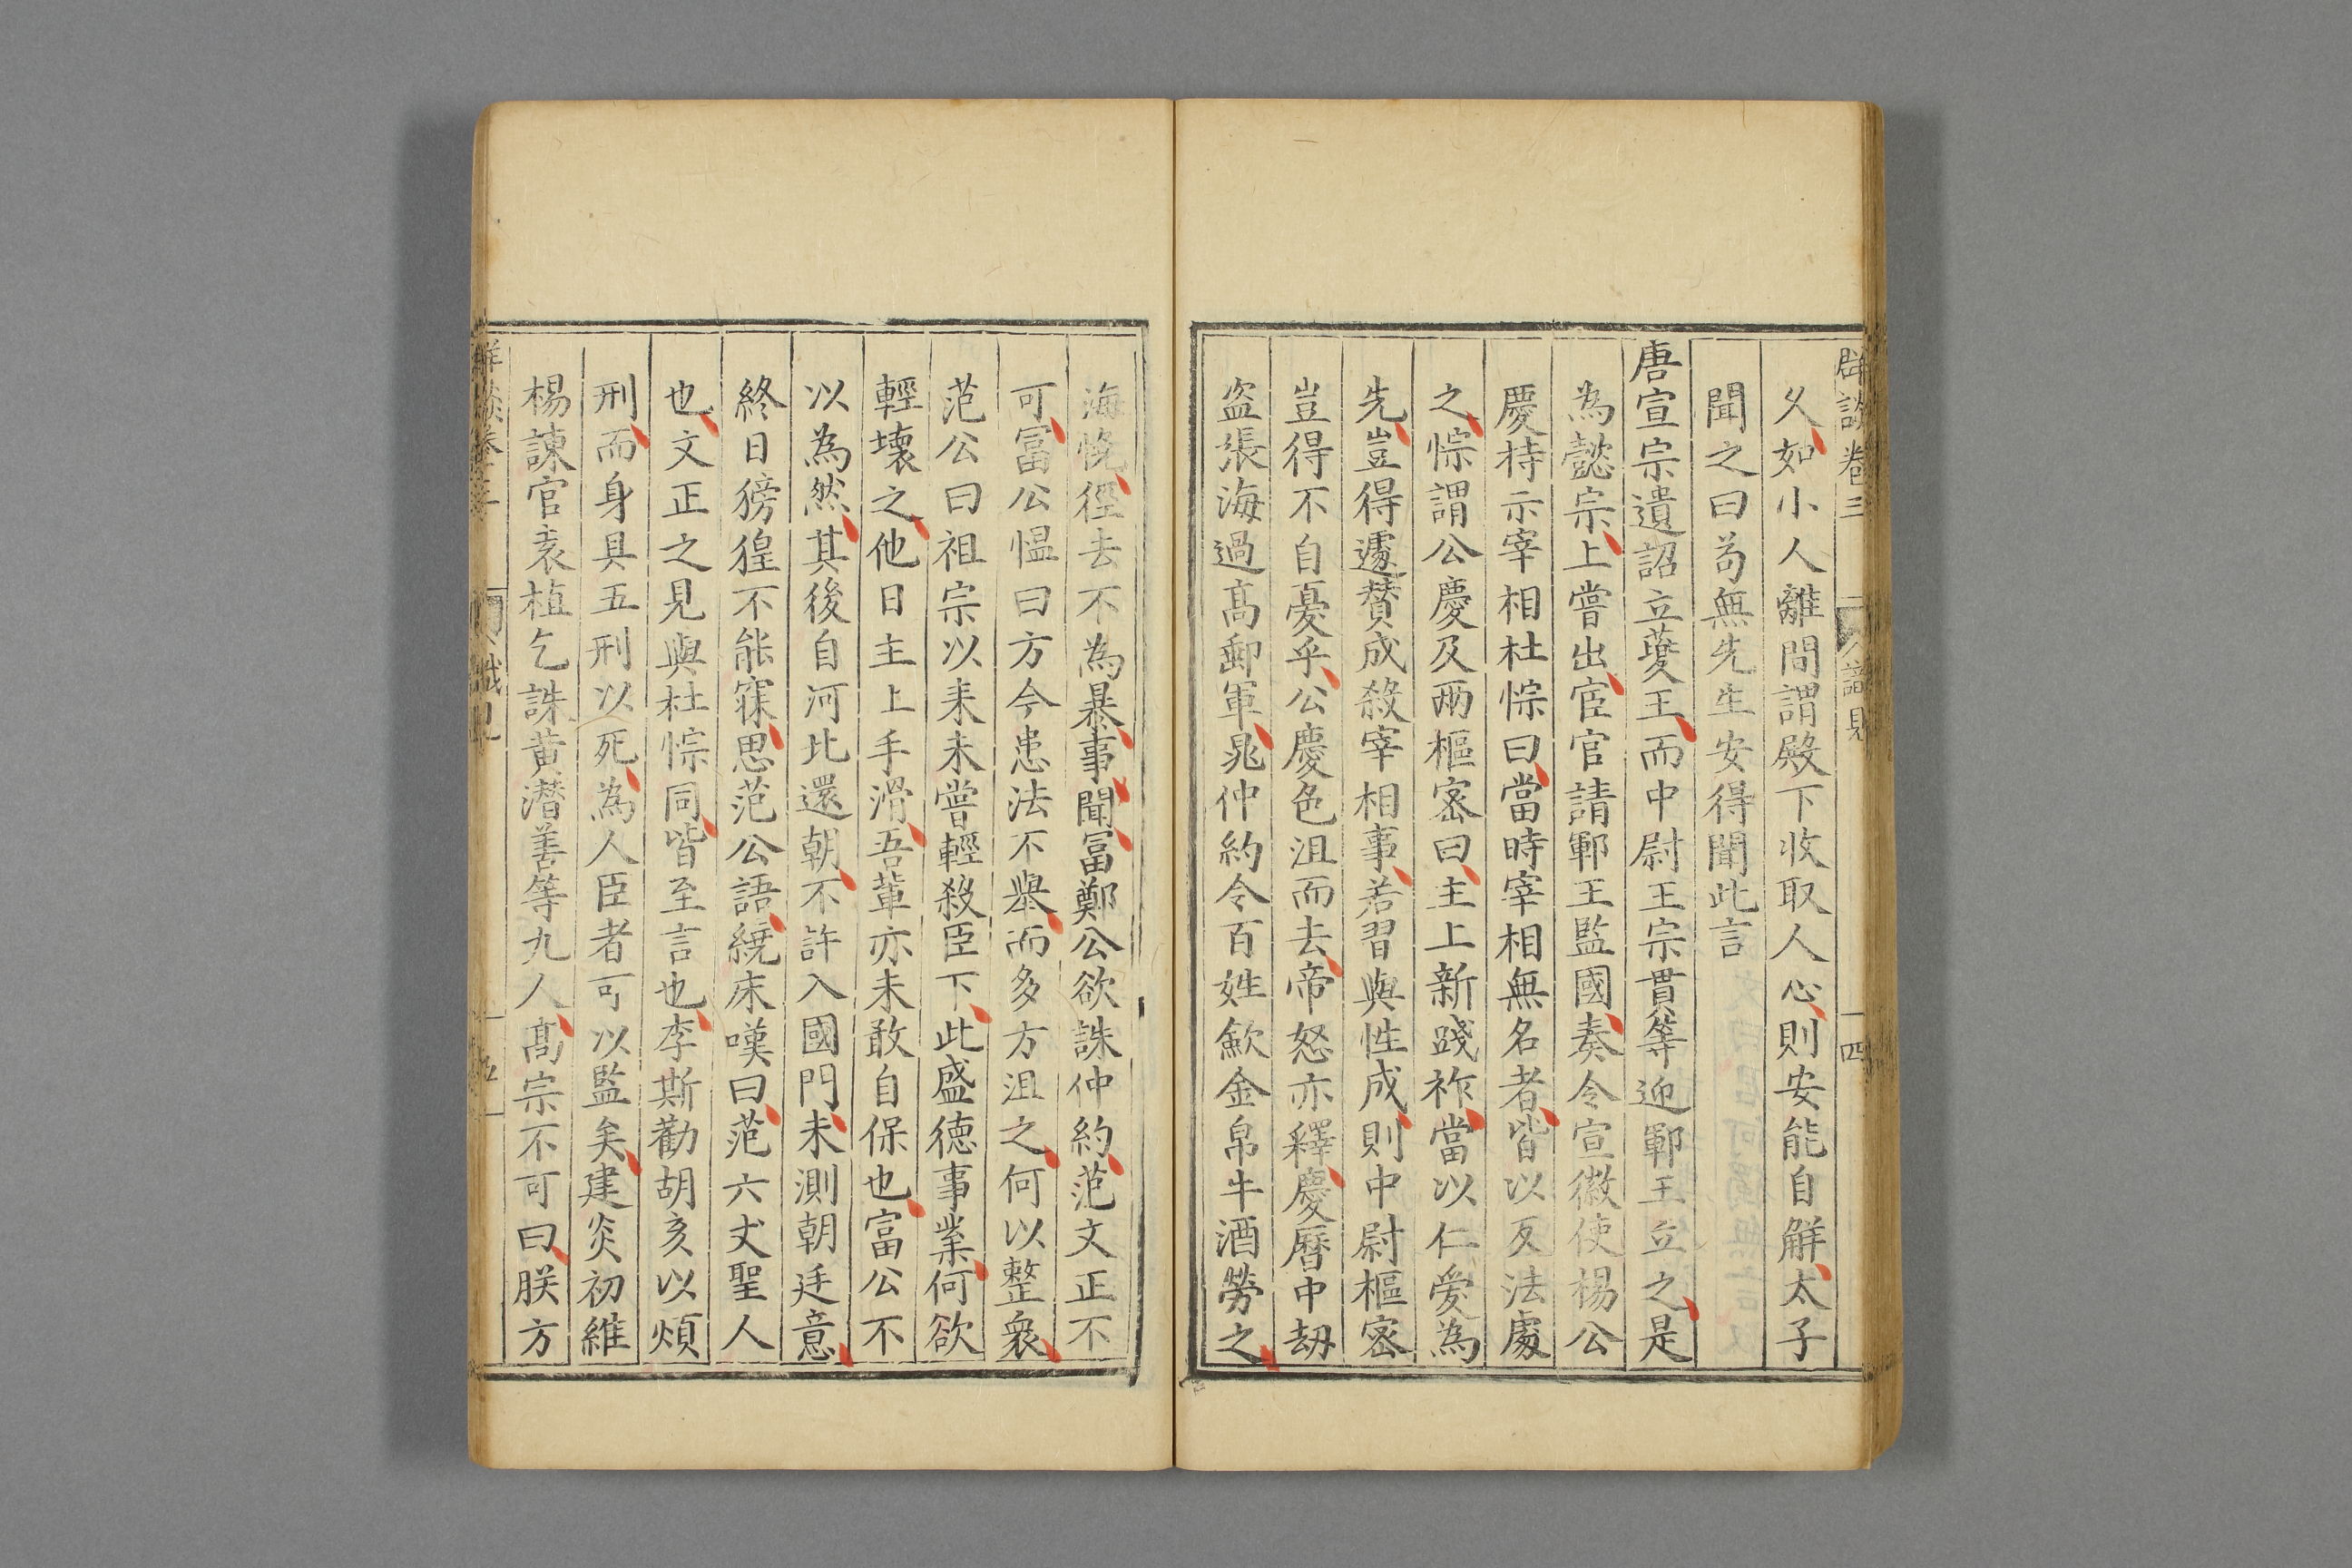 卷三
四
乆如小人離間謂殿下收取人心則安能自解太子
聞之曰茍無先生安得聞此言
唐宣宗遺詔立夔王而中尉王宗貫等迎鄆王立之是
為懿宗上嘗出宦官請鄆王監國奏令宣徽使楊公
慶持示宰相杜悰曰當時宰相無名者皆以反法處
之悰謂公慶及兩樞宻曰主上新踐祚當以仁愛為
先豈得遽賛成殺宰相事若習與性成則中尉樞宻
豈得不自憂乎公慶色沮而去帝怒亦釋慶曆中刼
盗張海過髙郵軍晁仲約令百姓歛金帛牛酒勞之
海恱徑去不為暴事聞冨鄭公欲誅仲約范文正不
可冨公愠曰方今患法不舉而多方沮之何以整衆
范公曰祖宗以来未嘗輕殺臣下此盛徳事業何欲
輕壊之他日主上手滑吾輩亦未敢自保也富公不
以為然其後自河北還朝不許入國門未測朝廷意
終日徬徨不能寐思范公語繞床嘆曰范六丈聖人
也文正之見與杜悰同皆至言也李斯勸胡亥以煩
刑而身具五刑以死為人臣者可以監矣建炎初維
楊諫官袁植乞誅黄潛善等九人髙宗不可曰朕方